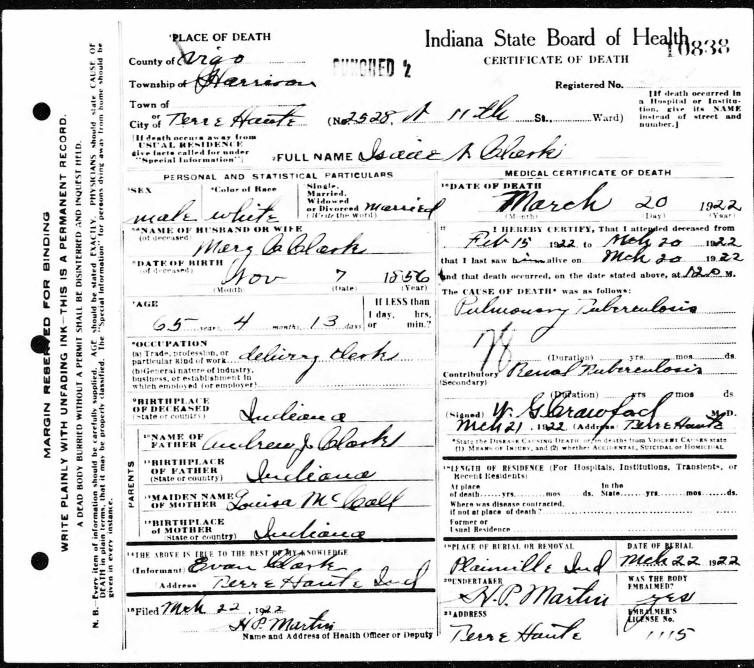 Indiana State Board of Health
CERTIFICATE OF DEATH
10838
PUNCHED 2
¹PLACE OF DEATH
County of Vigo
Township of Harrison
Town of
or
City of Terre Haute (No. 2528, N 11th St., Ward)
Registered No.
[If death occurred in a Hospital or Institution, give its NAME instead of street and number.]
[If death occurs away from USUAL RESIDENCE give facts called for under "Special Information"]
²FULL NAME Isaac A Clark
PERSONAL AND STATISTICAL PARTICULARS
³SEX male
⁴Color of Race white
Single, Married, Widowed or Divorced (Write the word) married
NAME OF HUSBAND OR WIFE
(of deceased) Clark
⁶DATE OF BIRTH
(of deceased) Nov 7 1856
(Month) (Date) (Year)
⁷AGE
65 years 4 months 13 days
If LESS than 1 day, hrs. or min.?
⁸OCCUPATION
(a) Trade, profession, or particular kind of work delivery clerk
(b) General nature of industry, business, or establishment in which employed (or employer)
⁹BIRTHPLACE OF DECEASED
(State or country) Indiana
PARENTS
¹⁰NAME OF FATHER Andrew J Clark
¹¹BIRTHPLACE OF FATHER
(State or country) Indiana
¹²MAIDEN NAME OF MOTHER Louisa McCall
¹³BIRTHPLACE OF MOTHER
(State or country) Indiana
¹⁴THE ABOVE IS TRUE TO THE BEST OF MY KNOWLEDGE
(Informant) Evan Clark
(Address) Terre Haute Ind
¹⁵Filed Mch 22, 1922
H P Martin
Name and Address of Health Officer or Deputy
MEDICAL CERTIFICATE OF DEATH
¹⁶DATE OF DEATH
March 20 1922
(Month) (Day) (Year)
I HEREBY CERTIFY, That I attended deceased from
Feb 15 1922 to Mch 20 1922
that I last saw him alive on Mch 20 1922
and that death occurred, on the date stated above, at M.
The CAUSE OF DEATH* was as follows:
Pulmonary Tuberculosis
(Duration) yrs mos ds.
Contributory Renal Tuberculosis
(Secondary)
(Duration) yrs mos ds.
(Signed) W. G. Crawford M. D.
Mch 21, 1922 (Address) Terre Haute
*State the DISEASE CAUSING DEATH or, in deaths from VIOLENT CAUSES state (1) MEANS OF INJURY, and (2) whether ACCIDENTAL, SUICIDAL or HOMICIDAL
¹⁸LENGTH OF RESIDENCE (For Hospitals, Institutions, Transients, or Recent Residents)
At place of death yrs. mos ds. In the State yrs. mos ds.
Where was disease contracted, if not at place of death?
Former or Usual Residence
¹⁹PLACE OF BURIAL OR REMOVAL
Plainville Ind
DATE OF BURIAL
Mch 22 1922
²⁰UNDERTAKER
H. P. Martin
WAS THE BODY EMBALMED?
yes
²¹ADDRESS
Terre Haute
EMBALMER'S LICENSE No.
1115
MARGIN RESERVED FOR BINDING
WRITE PLAINLY WITH UNFADING INK—THIS IS A PERMANENT RECORD.
A DEAD BODY BURIED WITHOUT A PERMIT SHALL BE DISINTERRED AND INQUEST HELD.
N. B.—Every item of information should be carefully supplied. AGE should be stated EXACTLY. PHYSICIANS should state CAUSE OF
DEATH in plain terms, that it may be properly classified. The "Special Information" for persons dying away from home should be
given in every instance.